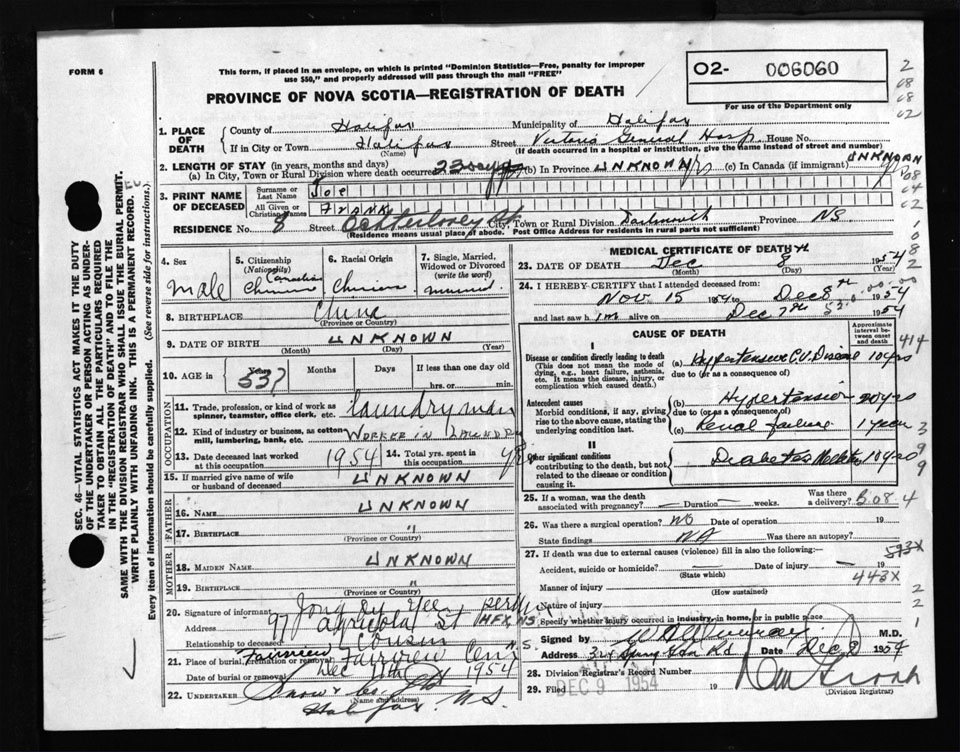 FORM 6
This form, if placed in an envelope, on which is printed "Dominion Statistics—Free, penalty for improper
use $50," and properly addressed will pass through the mail "FREE"
PROVINCE OF NOVA SCOTIA—REGISTRATION OF DEATH
O2- 006060
For use of the Department only
1. PLACE OF DEATH
County of Halifax Municipality of Halifax
If in City or Town Halifax Street Victoria General Hosp. House No.
(Name) (If death occurred in a hospital or institution, give the name instead of street and number)
2. LENGTH OF STAY (in years, months and days)
(a) In City, Town or Rural Division where death occurred 23 days (b) In Province UNKNOWN yrs (c) In Canada (if immigrant) UNKNOWN yrs
3. PRINT NAME OF DECEASED
Surname or Last Name Joe
All Given or Christian Names FRANK
RESIDENCE No. 8 Street Ochterloney St City, Town or Rural Division Dartmouth Province NS
(Residence means usual place of abode. Post Office Address for residents in rural parts not sufficient)
4. Sex male
5. Citizenship (Nationality) Canadian
6. Racial Origin
7. Single, Married, Widowed or Divorced (write the word)
8. BIRTHPLACE China
(Province or Country)
9. DATE OF BIRTH UNKNOWN
(Month) (Day) (Year)
10. AGE in Years 53? Months Days If less than one day
hrs. or min.
OCCUPATION
11. Trade, profession, or kind of work as spinner, teamster, office clerk, etc. Laundryman
12. Kind of industry or business, as cotton mill, lumbering, bank, etc. WORKER IN LAUNDRY
13. Date deceased last worked at this occupation 1954 14. Total yrs. spent in this occupation yrs
15. If married give name of wife or husband of deceased UNKNOWN
FATHER
16. NAME UNKNOWN
17. BIRTHPLACE "
(Province or Country)
MOTHER
18. MAIDEN NAME UNKNOWN
19. BIRTHPLACE "
(Province or Country)
20. Signature of informant
Address 97 Agricola St HFX, NS
Relationship to deceased Cousin
21. Place of burial, cremation or removal Fairview Fairview Cem
Date of burial or removal Dec 1954
22. UNDERTAKER Snow & Co.
(Name and address)
Halifax N.S.
MEDICAL CERTIFICATE OF DEATH
23. DATE OF DEATH Dec 8th 1954
(Month) (Day) (Year)
24. I HEREBY CERTIFY that I attended deceased from:
Nov 15 1954 to Dec 8th 1954
and last saw him alive on Dec 7th 1954
CAUSE OF DEATH
Approximate interval between onset and death
I
Disease or condition directly leading to death
(This does not mean the mode of dying, e.g., heart failure, asthenia, etc. It means the disease, injury, or complication which caused death.)
(a) Hypertensive C.V. Disease 10 yrs
due to (or as a consequence of)
Antecedent causes
Morbid conditions, if any, giving rise to the above cause, stating the underlying condition last.
(b) Hypertension 20 yrs
due to (or as a consequence of)
(c) Renal failure 1 year
II
Other significant conditions
contributing to the death, but not related to the disease or condition causing it.
Diabetes Mellitus 10 yrs
25. If a woman, was the death associated with pregnancy? — Duration — weeks. Was there a delivery?
B.08.4
26. Was there a surgical operation? NO Date of operation 19
State findings NA Was there an autopsy?
27. If death was due to external causes (violence) fill in also the following:—
593X
Accident, suicide or homicide? — Date of injury — 19
(State which)
443X
Manner of injury
(How sustained)
Nature of injury
Specify whether injury occurred in industry, in home, or in public place
Signed by M.D.
Address 324 Spring Gdn Rd Date Dec 8 1954
28. Division Registrar's Record Number
29. Filed DEC 9 1954 19
(Division Registrar)
SEC. 46—VITAL STATISTICS ACT MAKES IT THE DUTY
OF THE UNDERTAKER OR PERSON ACTING AS UNDER-
TAKER TO OBTAIN ALL THE PARTICULARS REQUIRED
IN THE "REGISTRATION OF DEATH" AND TO FILE THE
SAME WITH THE DIVISION REGISTRAR WHO SHALL ISSUE THE BURIAL PERMIT.
WRITE PLAINLY WITH UNFADING INK. THIS IS A PERMANENT RECORD.
Every item of information should be carefully supplied. (See reverse side for instructions.)